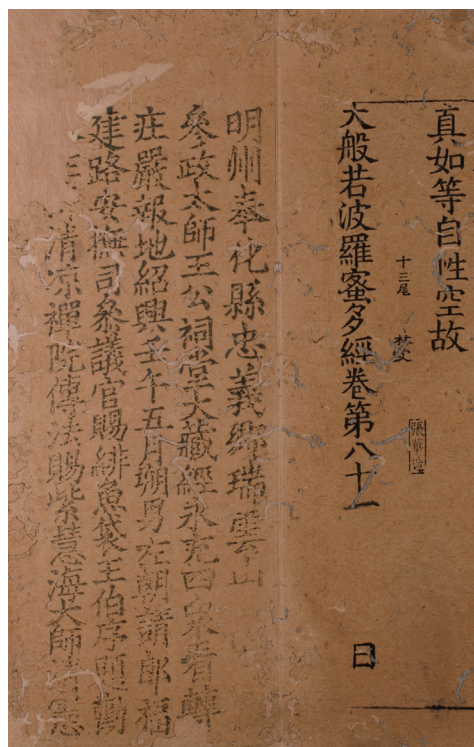 真如等自性空故
十三尾
大般若波羅蜜多經卷第八十一
日
明州奉化縣忠義鄉瑞雲山
叅政太師王公祠堂大藏經永充四衆看轉
莊嚴報地紹興壬午五月朔男左朝請郎福
建路安撫司叅議官賜緋魚袋王伯序題勸
清凉禪院傳法賜紫慧海大師清憲